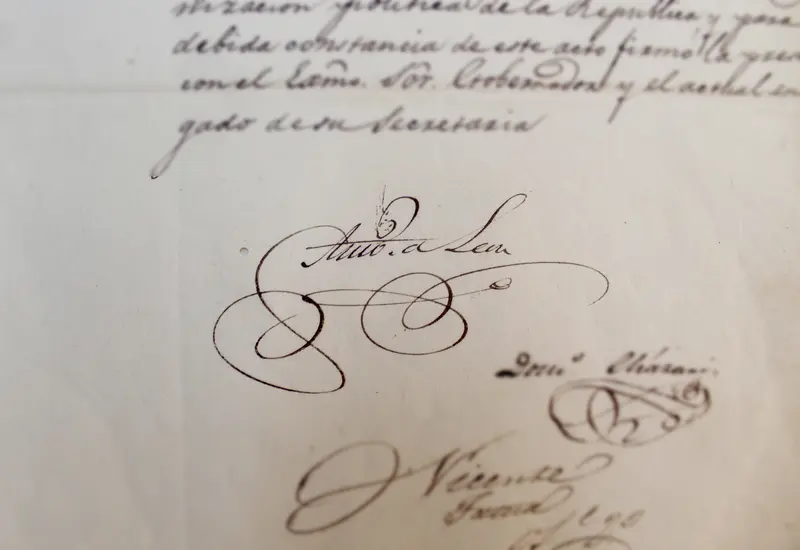 nizacion politica de la Republica y para
debida constancia de este acto firmó la
con el Exmo. Sor. Gobernador y el actual en
gado de su Secretaria
Anto. de Leon
Domo.
Vicente